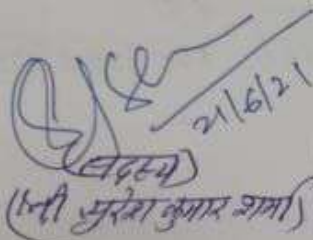 21/6/21
(सदस्य)
(श्री सुरेश कुमार शर्मा)